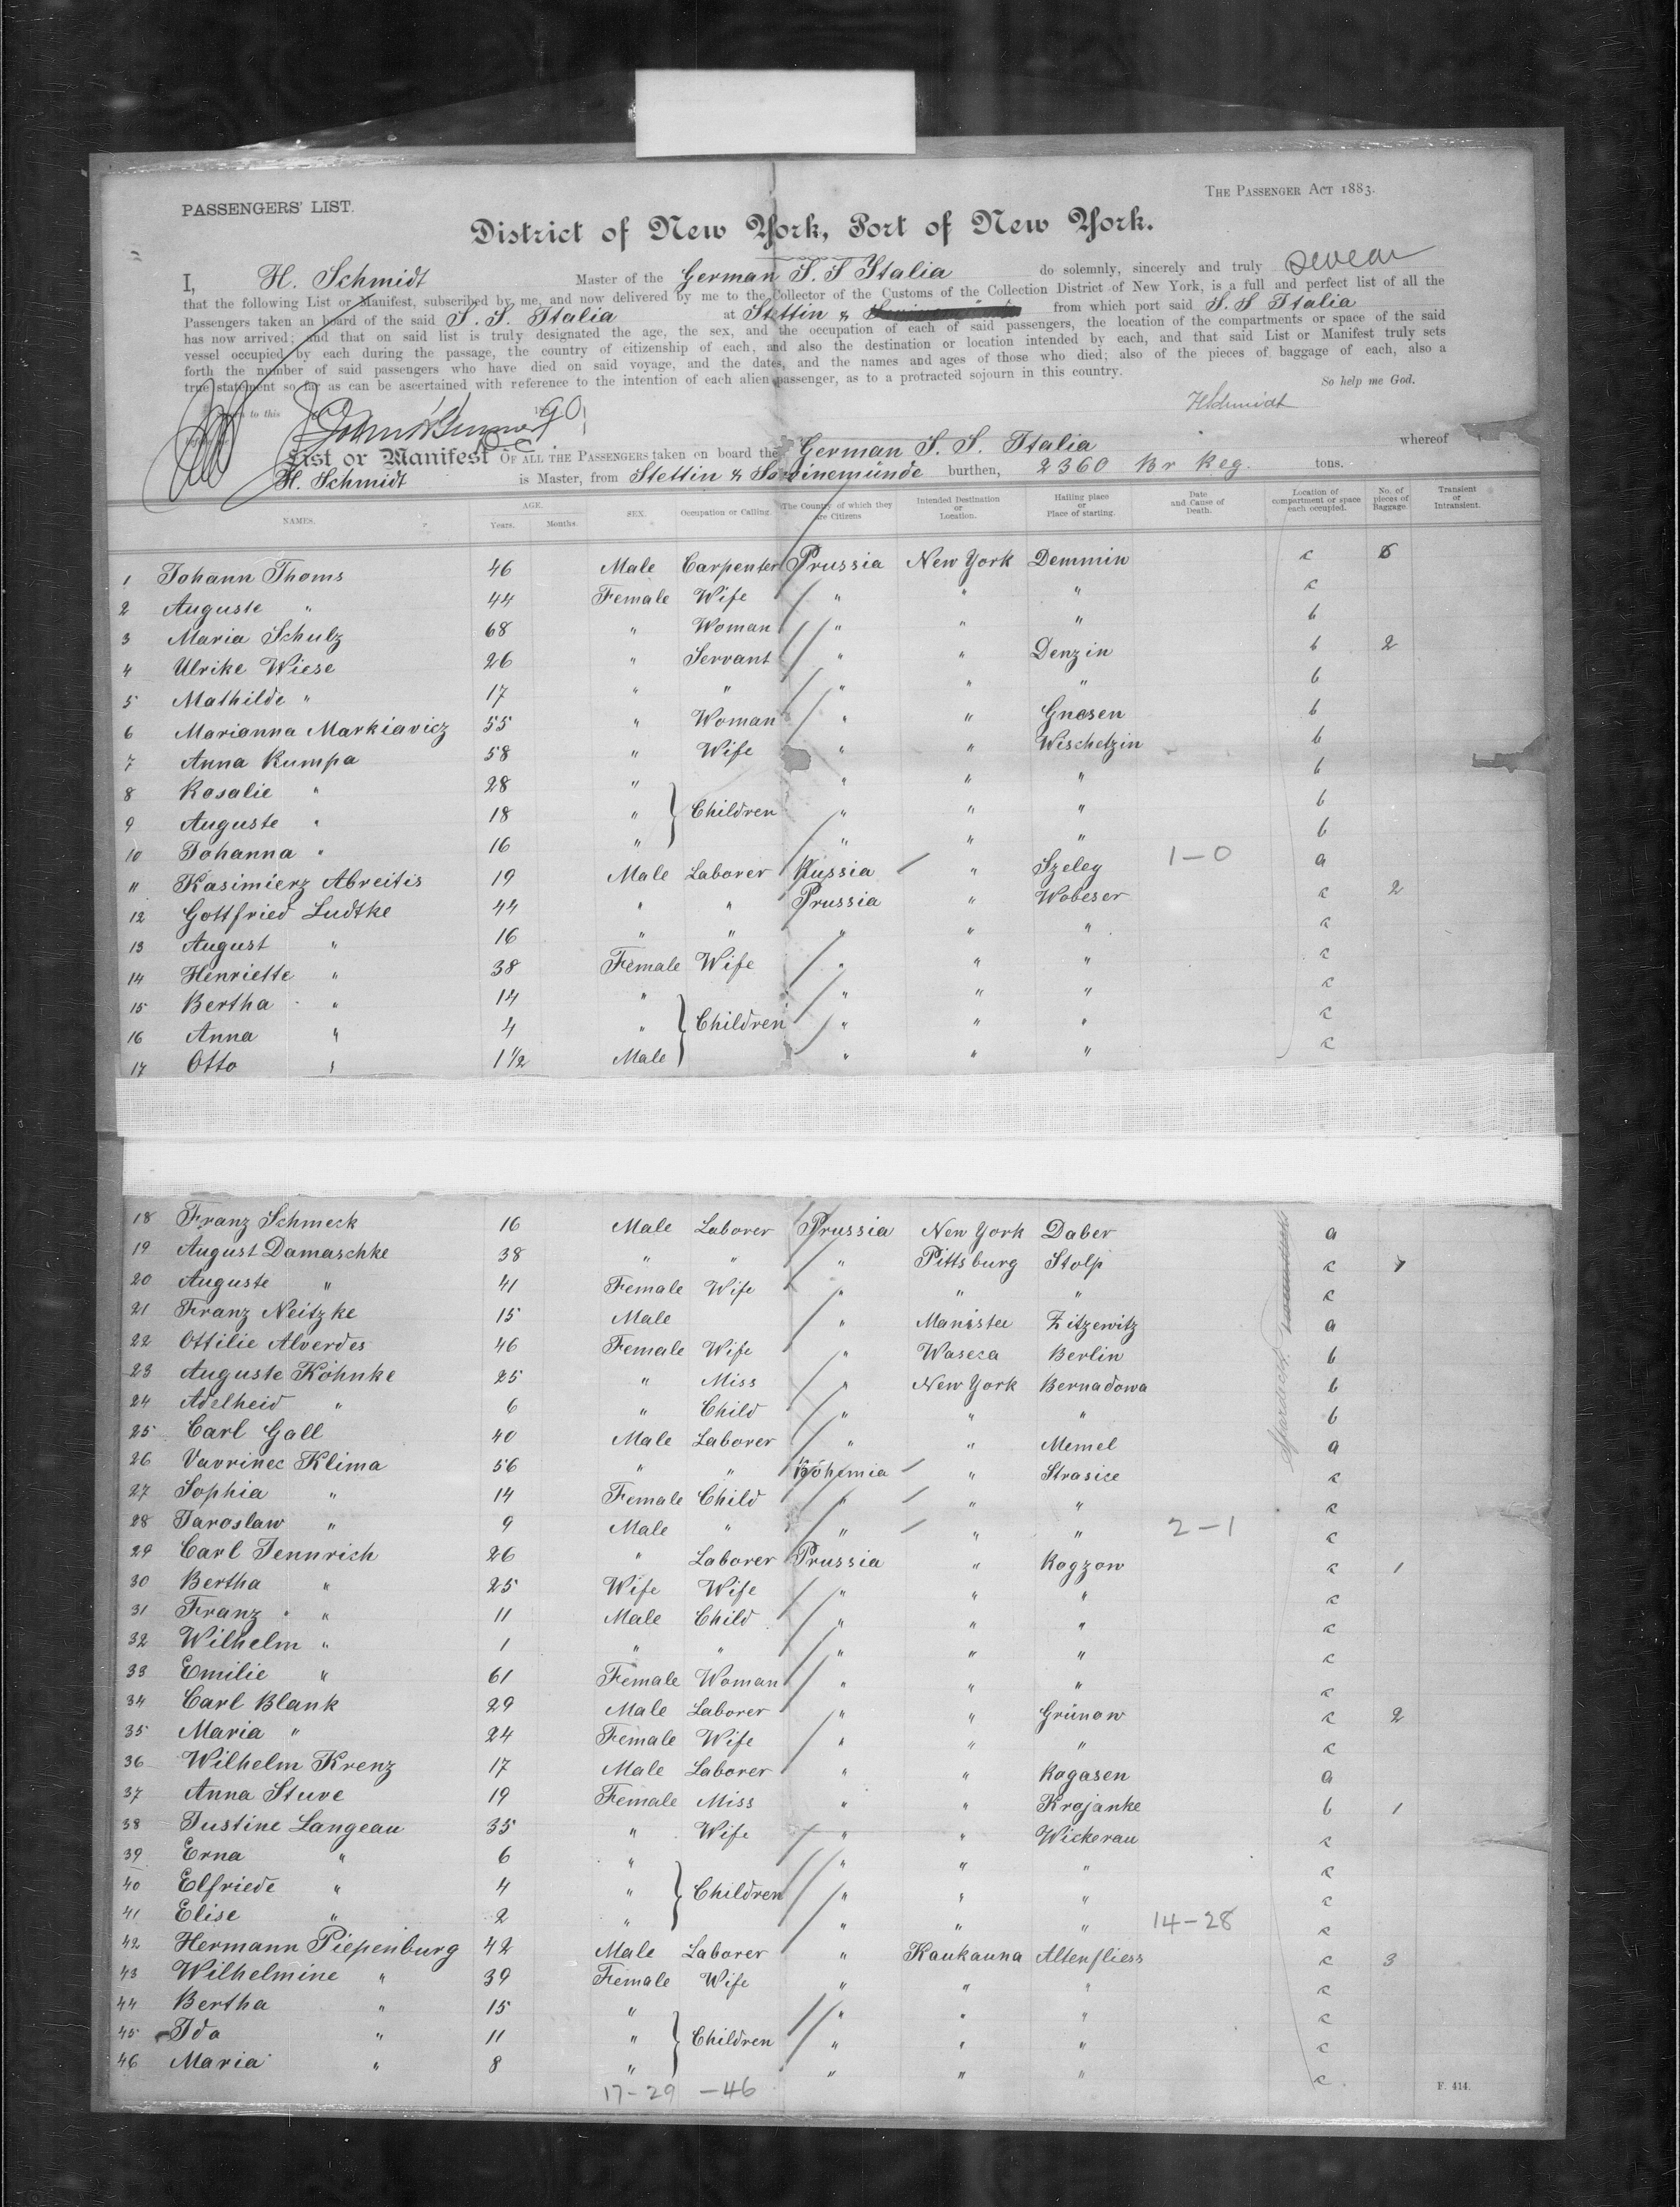 PASSENGERS' LIST.
THE PASSENGER ACT 1883.
District of New York, Port of New York.
I, H. Schmidt Master of the German S. S Italia do solemnly, sincerely and truly swear
that the following List or Manifest, subscribed by me, and now delivered by me to the Collector of the Customs of the Collection District of New York, is a full and perfect list of all the
Passengers taken on board of the said S. S. Italia at Stettin & from which port said S. S Italia
has now arrived; and that on said list is truly designated the age, the sex, and the occupation of each of said passengers, the location of the compartments or space of the said
vessel occupied by each during the passage, the country of citizenship of each, and also the destination or location intended by each, and that said List or Manifest truly sets
forth the number of said passengers who have died on said voyage, and the dates, and the names and ages of those who died; also of the pieces of baggage of each, also a
true statement so far as can be ascertained with reference to the intention of each alien passenger, as to a protracted sojourn in this country. So help me God.
to this 90
HSchmidt
List or Manifest OF ALL THE PASSENGERS taken on board the German S. S. Italia whereof
H. Schmidt is Master, from Stettin & Swinemünde burthen, 2360 Br Reg. tons.
NAMES. AGE. Years. Months. SEX. Occupation or Calling. The Country of which they are Citizens Intended Destination or Location. Hailing place or Place of starting. Date and Cause of Death. Location of compartment or space each occupied. No. of pieces of Baggage. Transient or Intransient.
1 Johann Thoms 46 Male Carpenter Prussia New York Demmin c 6
2 Auguste " 44 Female Wife " " " c
3 Maria Schulz 68 " Woman " " " b
4 Ulrike Wiese 26 " Servant " " Denzin b 2
5 Mathilde " 17 " " " " " b
6 Marianna Markiavicz 55 " Woman " " Gnesen b
7 Anna Kumpa 58 " Wife " " Wischetzin b
8 Rosalie " 28 " " " " b
9 Auguste " 18 " Children " " " b
10 Johanna " 16 " " " " b
11 Kasimierz Abreitis 19 Male Laborer Russia " Szeley 1-0 a
12 Gottfried Ludtke 44 " " Prussia " Wobeser c 2
13 August " 16 " " " " " c
14 Henriette " 38 Female Wife " " " c
15 Bertha " 14 " " " " c
16 Anna " 4 " Children " " " c
17 Otto " 1 1/2 Male " " " c
18 Franz Schmeck 16 Male Laborer Prussia New York Daber a
19 August Damaschke 38 " " " Pittsburg Stolp c 1
20 Auguste " 41 Female Wife " " " c
21 Franz Neitzke 15 Male " Manistee Zitzewitz a
22 Ottilie Alverdes 46 Female Wife " Waseca Berlin b
23 Auguste Köhnke 25 " Miss " New York Bernadowa b
24 Adelheid " 6 " Child " " " b
25 Carl Gall 40 Male Laborer " " Memel a
26 Vavrinec Klima 56 " " Bohemia " Strasice c
27 Sophia " 14 Female Child " " " c
28 Jaroslaw " 9 Male " " " " 2-1 c
29 Carl Jennrich 26 " Laborer Prussia " Rogzow c 1
30 Bertha " 25 Wife Wife " " " c
31 Franz " 11 Male Child " " " c
32 Wilhelm " 1 " " " " " c
33 Emilie " 61 Female Woman " " " c
34 Carl Blank 29 Male Laborer " " Grünow c 2
35 Maria " 24 Female Wife " " " c
36 Wilhelm Krenz 17 Male Laborer " " Rogasen a
37 Anna Stuve 19 Female Miss " " Krojanke b 1
38 Justine Langeau 35 " Wife " " Wickerau c
39 Erna " 6 " " " " c
40 Elfriede " 4 " Children " " " c
41 Elise " 2 " " " " 14-28 c
42 Hermann Piepenburg 42 Male Laborer " Kaukauna Altenfliess c 3
43 Wilhelmine " 39 Female Wife " " " c
44 Bertha " 15 " " " " c
45 Ida " 11 " Children " " " c
46 Maria " 8 " " " " c
17-29 -46
F. 414.